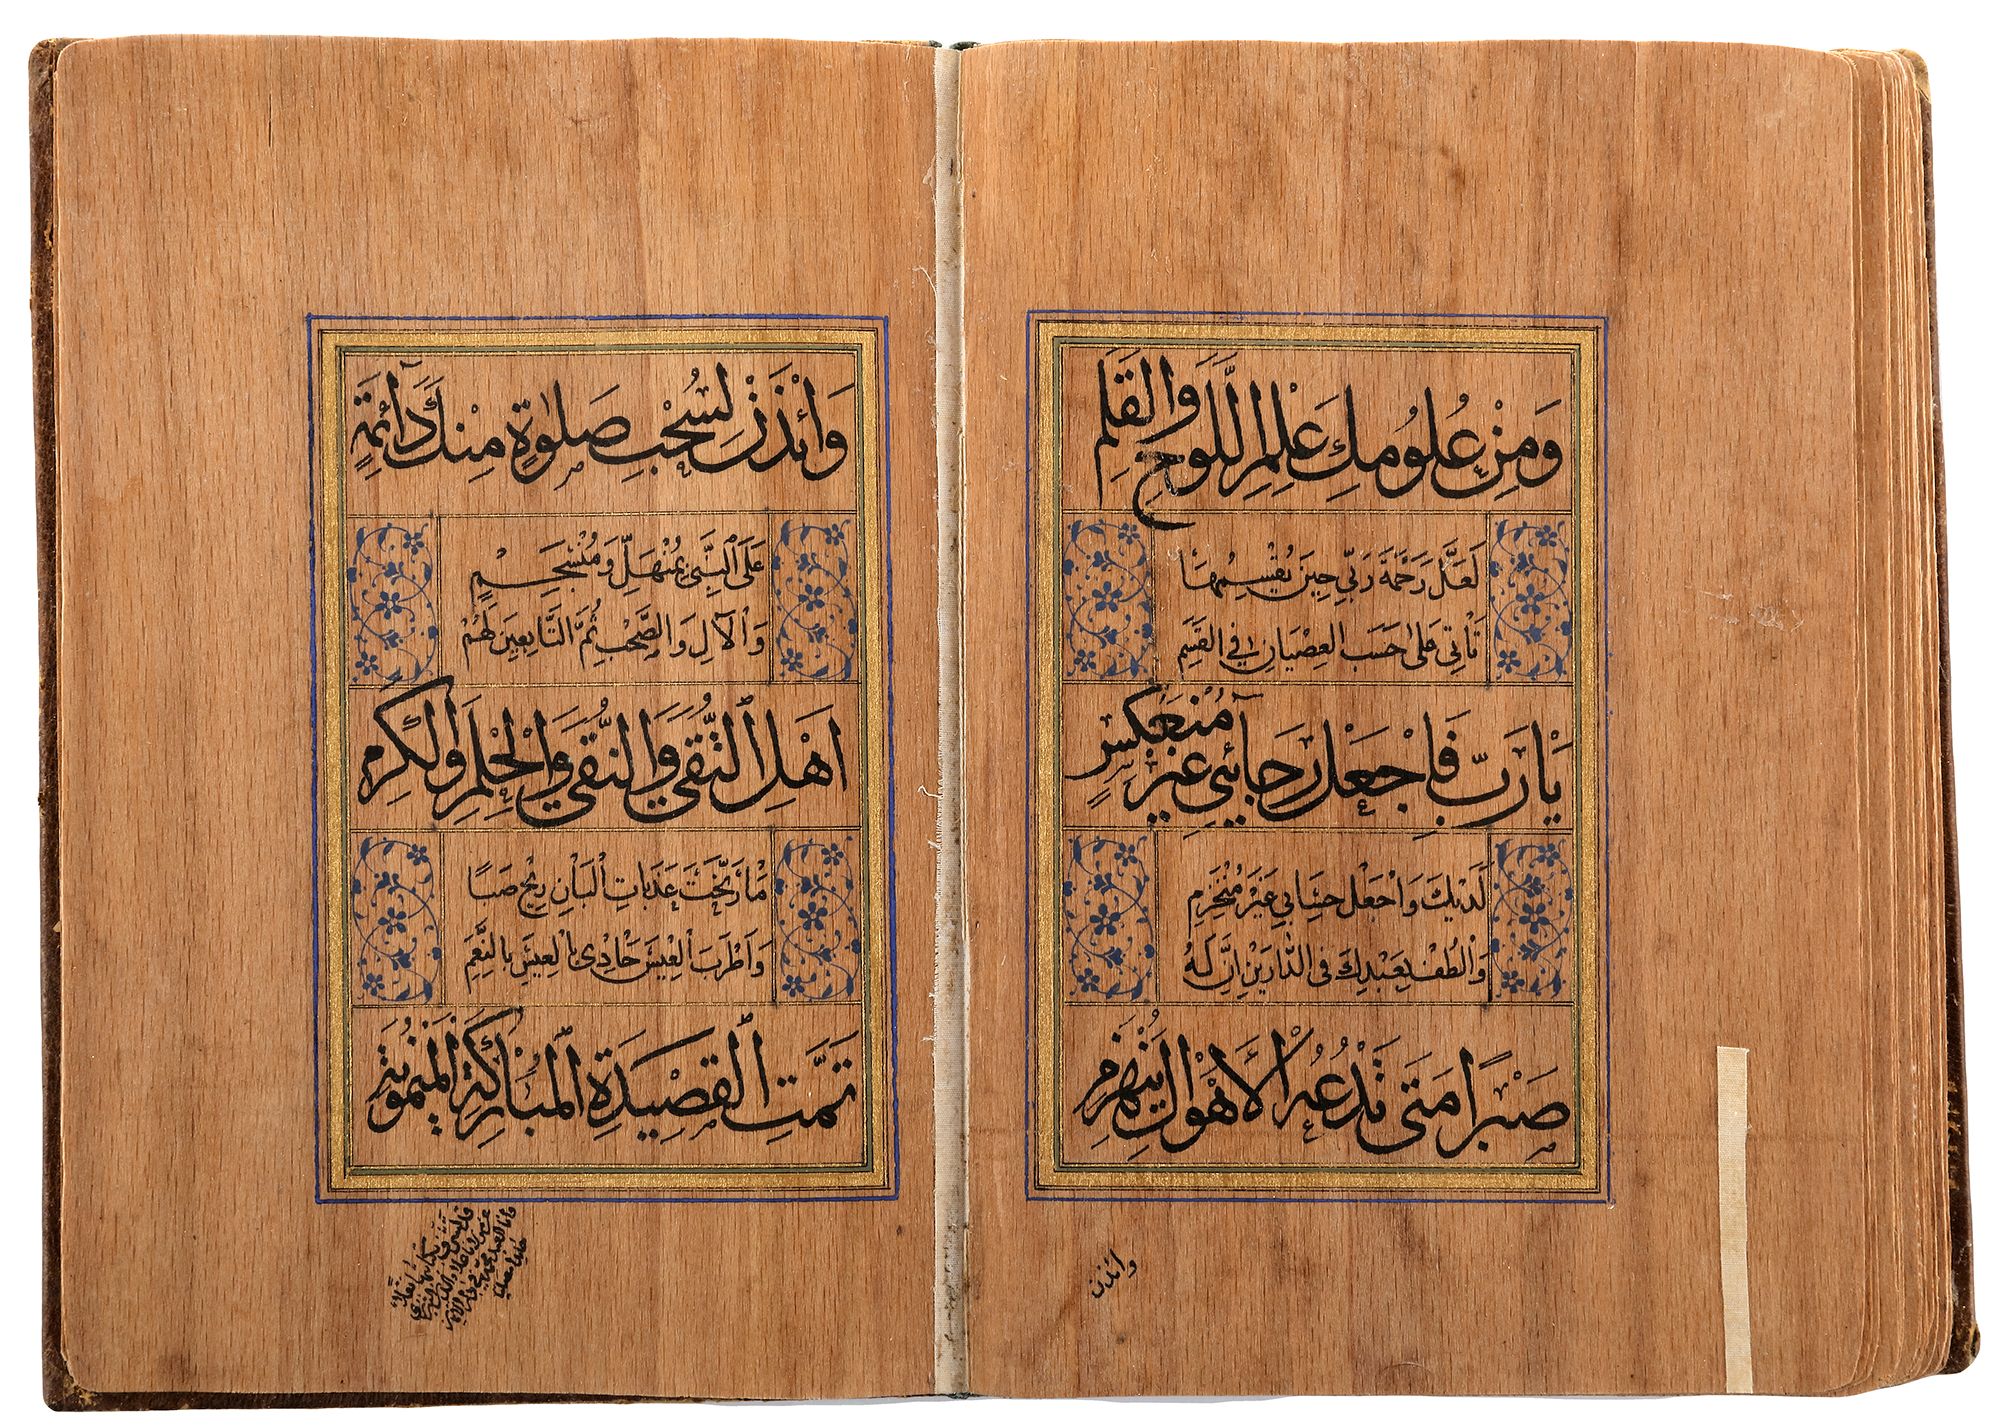 وَمِنْ عُلُومِكَ عِلْمَ اللَّوْحِ وَالْقَلَمِ
لَعَلَّ رَحْمَةَ رَبِّي حِينَ يُقْسِمُهَا
تَأْتِي عَلَى حَسَبِ الْعِصْيَانِ فِي الْقِسَمِ
يَا رَبِّ فَاجْعَلْ رَجَائِي غَيْرَ مُنْعَكِسٍ
لَدَيْكَ وَاجْعَلْ حِسَابِي غَيْرَ مُنْخَرِمِ
وَالْطُفْ بِعَبْدِكَ فِي الدَّارَيْنِ إِنَّ لَهُ
صَبْرًا مَتَى تَدْعُهُ الْأَهْوَالُ يَنْهَزِمِ
وائذن
وَائْذَنْ لِسُحْبِ صَلٰوةٍ مِنْكَ دَائِمَةٍ
عَلَى النَّبِيِّ بِمُنْهَلٍّ وَمُنْسَجِمِ
وَالْآلِ وَالصَّحْبِ ثُمَّ التَّابِعِينَ لَهُمْ
أَهْلِ التُّقَى وَالنُّقَى وَالْحِلْمِ وَالْكَرَمِ
مَا رَنَّحَتْ عَذَبَاتِ الْبَانِ رِيحُ صَبًا
وَأَطْرَبَ الْعِيسَ حَادِي الْعِيسِ بِالنَّغَمِ
تَمَّتِ الْقَصِيدَةُ الْمُبَارَكَةُ الْمَيْمُونَةُ